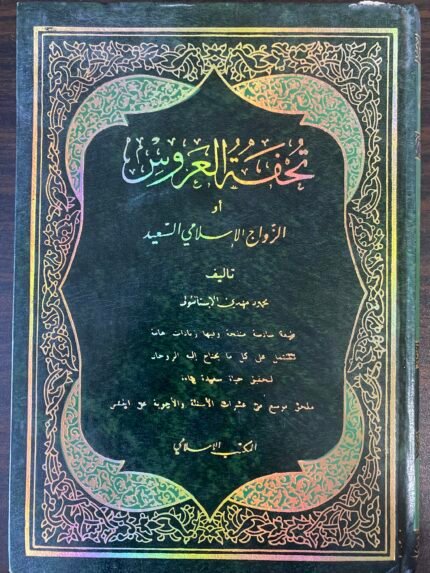 تُحْفَةُ العَرُوسْ
أو
الزّواج الإسلامي السّعيد
تأليف
محمود مهدي الإستانبولي
طبعة سادسة منقحة وفيها زيادات هامة
تشتمل على كل ما يحتاج إليه الزوجان
لتحقيق حياة سعيدة
ملحق موسع من عشرات الأسئلة والأجوبة عن الجنس
المكتب الإسلامي